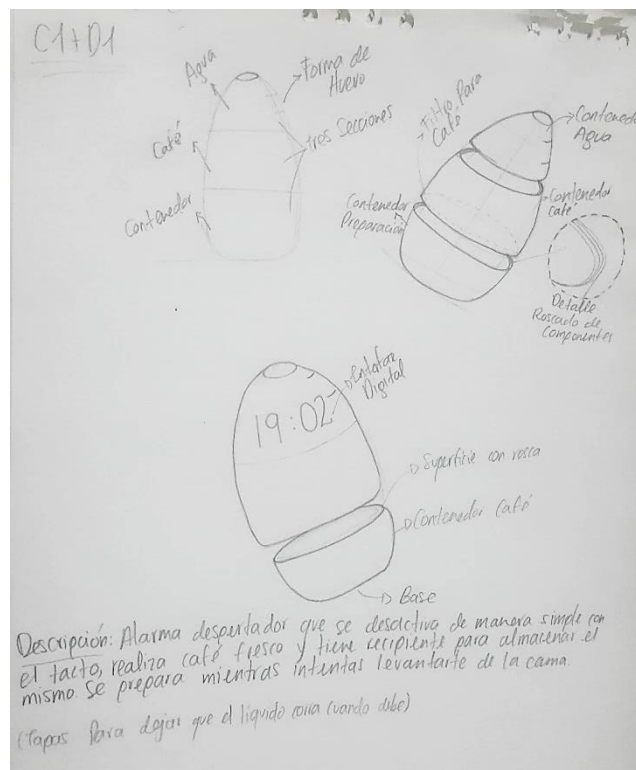 C1+D1
Agua
Forma de
Huevo
Café
Tres Secciones
Contenedor
Filtro Para
Café
Contenedo
Agua
Contenedor
Preparación
Contenedor
café
Detalle
Roscado de
Componentes
19:02
Digital
Superficie con rosca
Contenedor Café
Base
Descripción: Alarma despertador que se desactiva de manera simple con
el tacto, realiza café fresco y tiene recipiente para almacenar el
mismo. Se prepara mientras intentas levantarte de la cama.
(Tapas Para dejar que el líquido corra cuando debe)